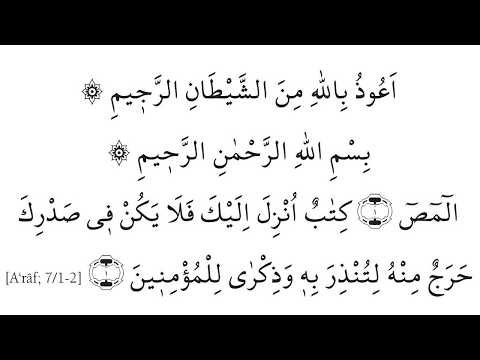 اَعُوذُ بِاللّٰهِ مِنَ الشَّيْطَانِ الرَّج۪يمِ ۞
بِسْمِ اللّٰهِ الرَّحْمٰنِ الرَّح۪يمِ ۞
الٓمٓصٓ ۝١ كِتَابٌ اُنْزِلَ اِلَيْكَ فَلَا يَكُنْ ف۪ي صَدْرِكَ
حَرَجٌ مِنْهُ لِتُنْذِرَ بِه۪ وَذِكْرٰى لِلْمُؤْمِن۪ينَ ۝١ [A‘râf; 7/1-2]